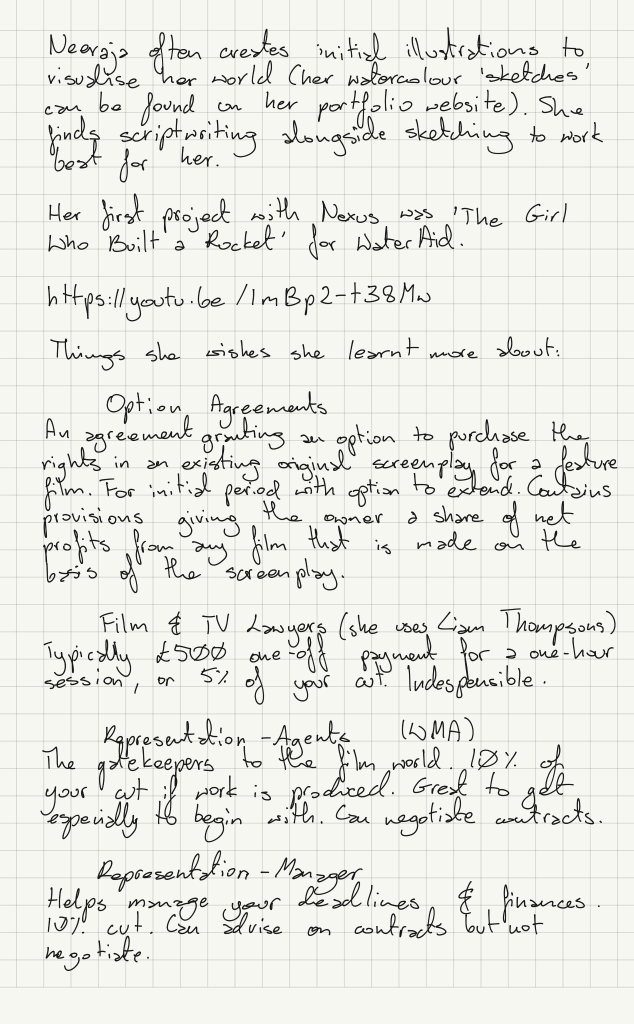 Neeraja often creates initial illustrations to
visualise her world (her watercolour 'sketches'
can be found on her portfolio website). She
finds scriptwriting alongside sketching to work
best for her.
Her first project with Nexus was 'The Girl
Who Built a Rocket' for WaterAid.
https://youtu.be/1mBp2-t38Mw
Things she wishes she learnt more about:
Option Agreements
An agreement granting an option to purchase the
rights in an existing original screenplay for a feature
film. For initial period with option to extend. Contains
provisions giving the owner a share of net
profits from any film that is made on the
basis of the screenplay.
Film & TV Lawyers (she uses Liam Thompsons)
Typically £500 one-off payment for a one-hour
session, or 5% of your cut. Indespensible.
Representation - Agents (WMA)
The gatekeepers to the film world. 10% of
your cut if work is produced. Great to get
especially to begin with. Can negotiate contracts.
Representation - Manager
Helps manage your deadlines & finances.
10% cut. Can advise on contracts but not
negotiate.